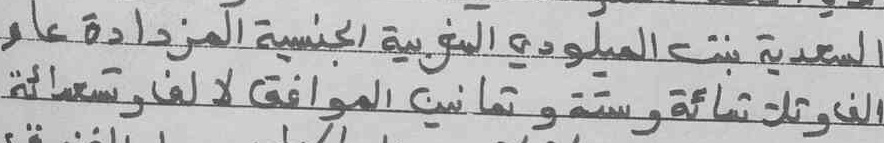 السعدية بنت الميلودي المغربية الجنسية المزدادة عام
الف وثلاثمائة وستة وثمانين الموافق لالف وتسعمائة